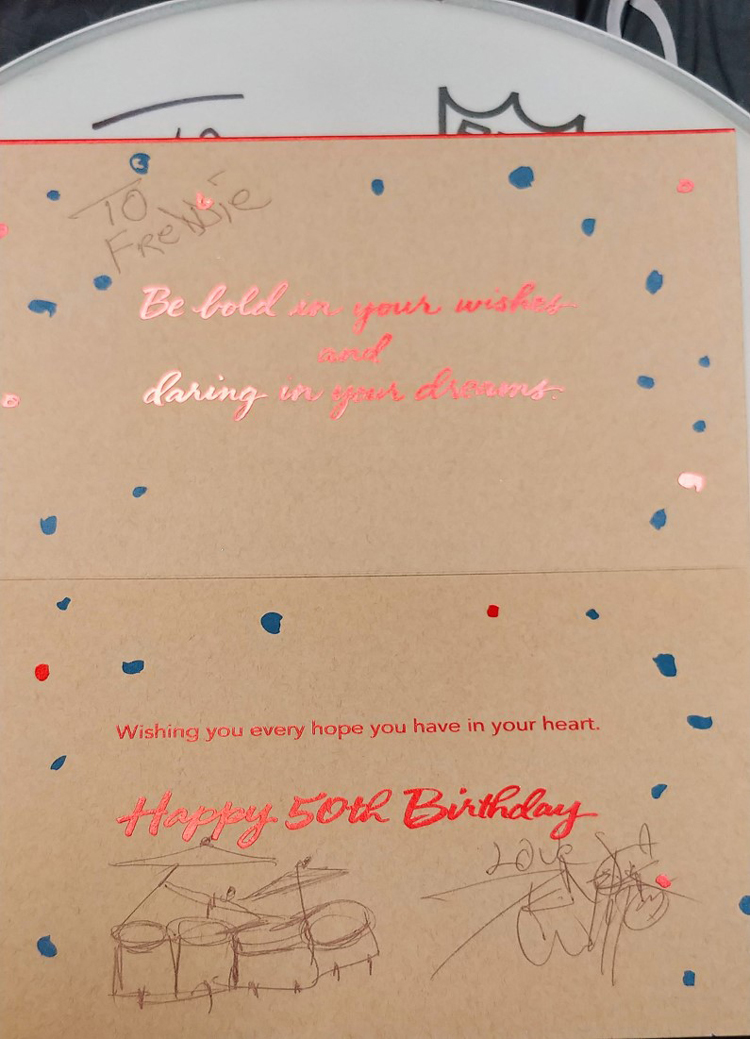 TO
FReDDie
Be bold in your wishes
and
daring in your dreams.
Wishing you every hope you have in your heart.
Happy 50th Birthday
Love